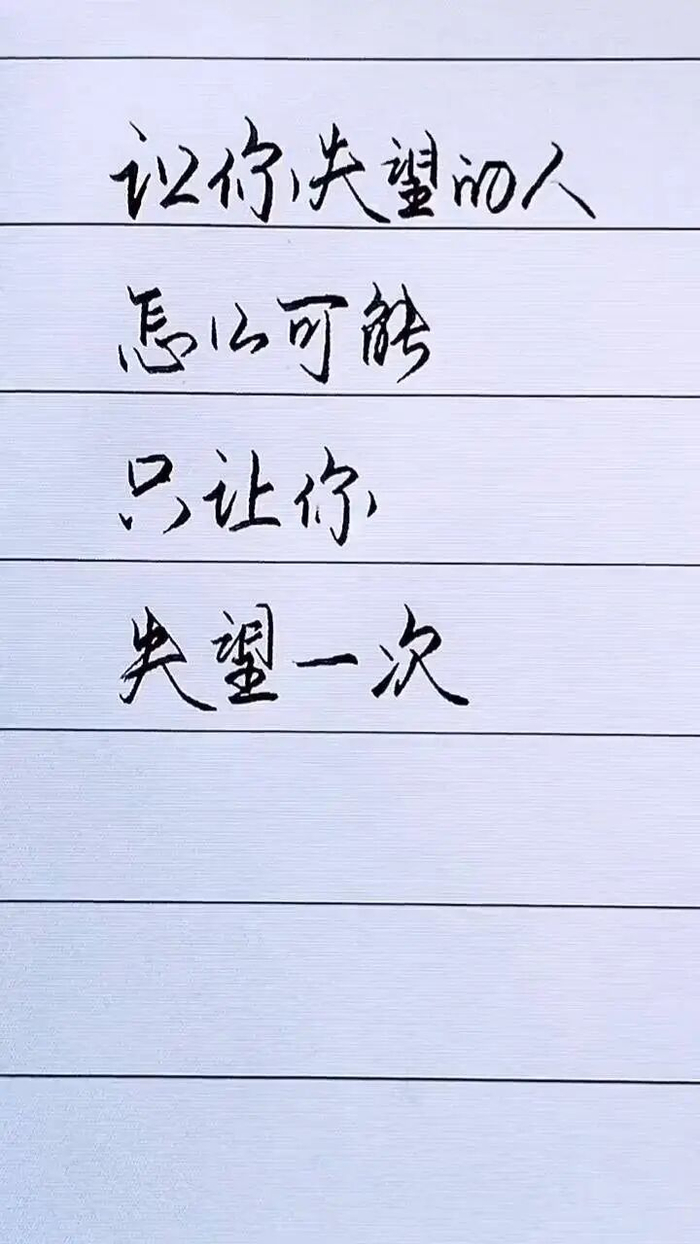 让你失望的人
怎么可能
只让你
失望一次